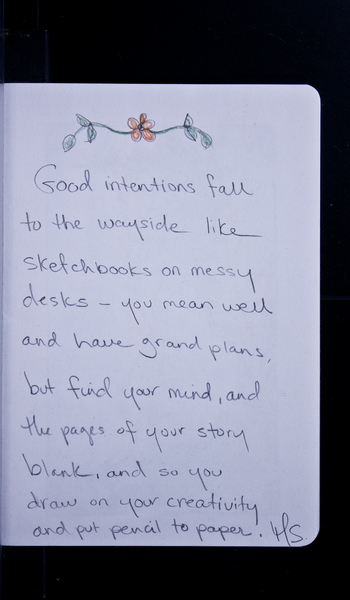 Good intentions fall
to the wayside like
sketchbooks on messy
desks – you mean well
and have grand plans,
but find your mind, and
the pages of your story
blank, and so you
draw on your creativity
and put pencil to paper. H/S.